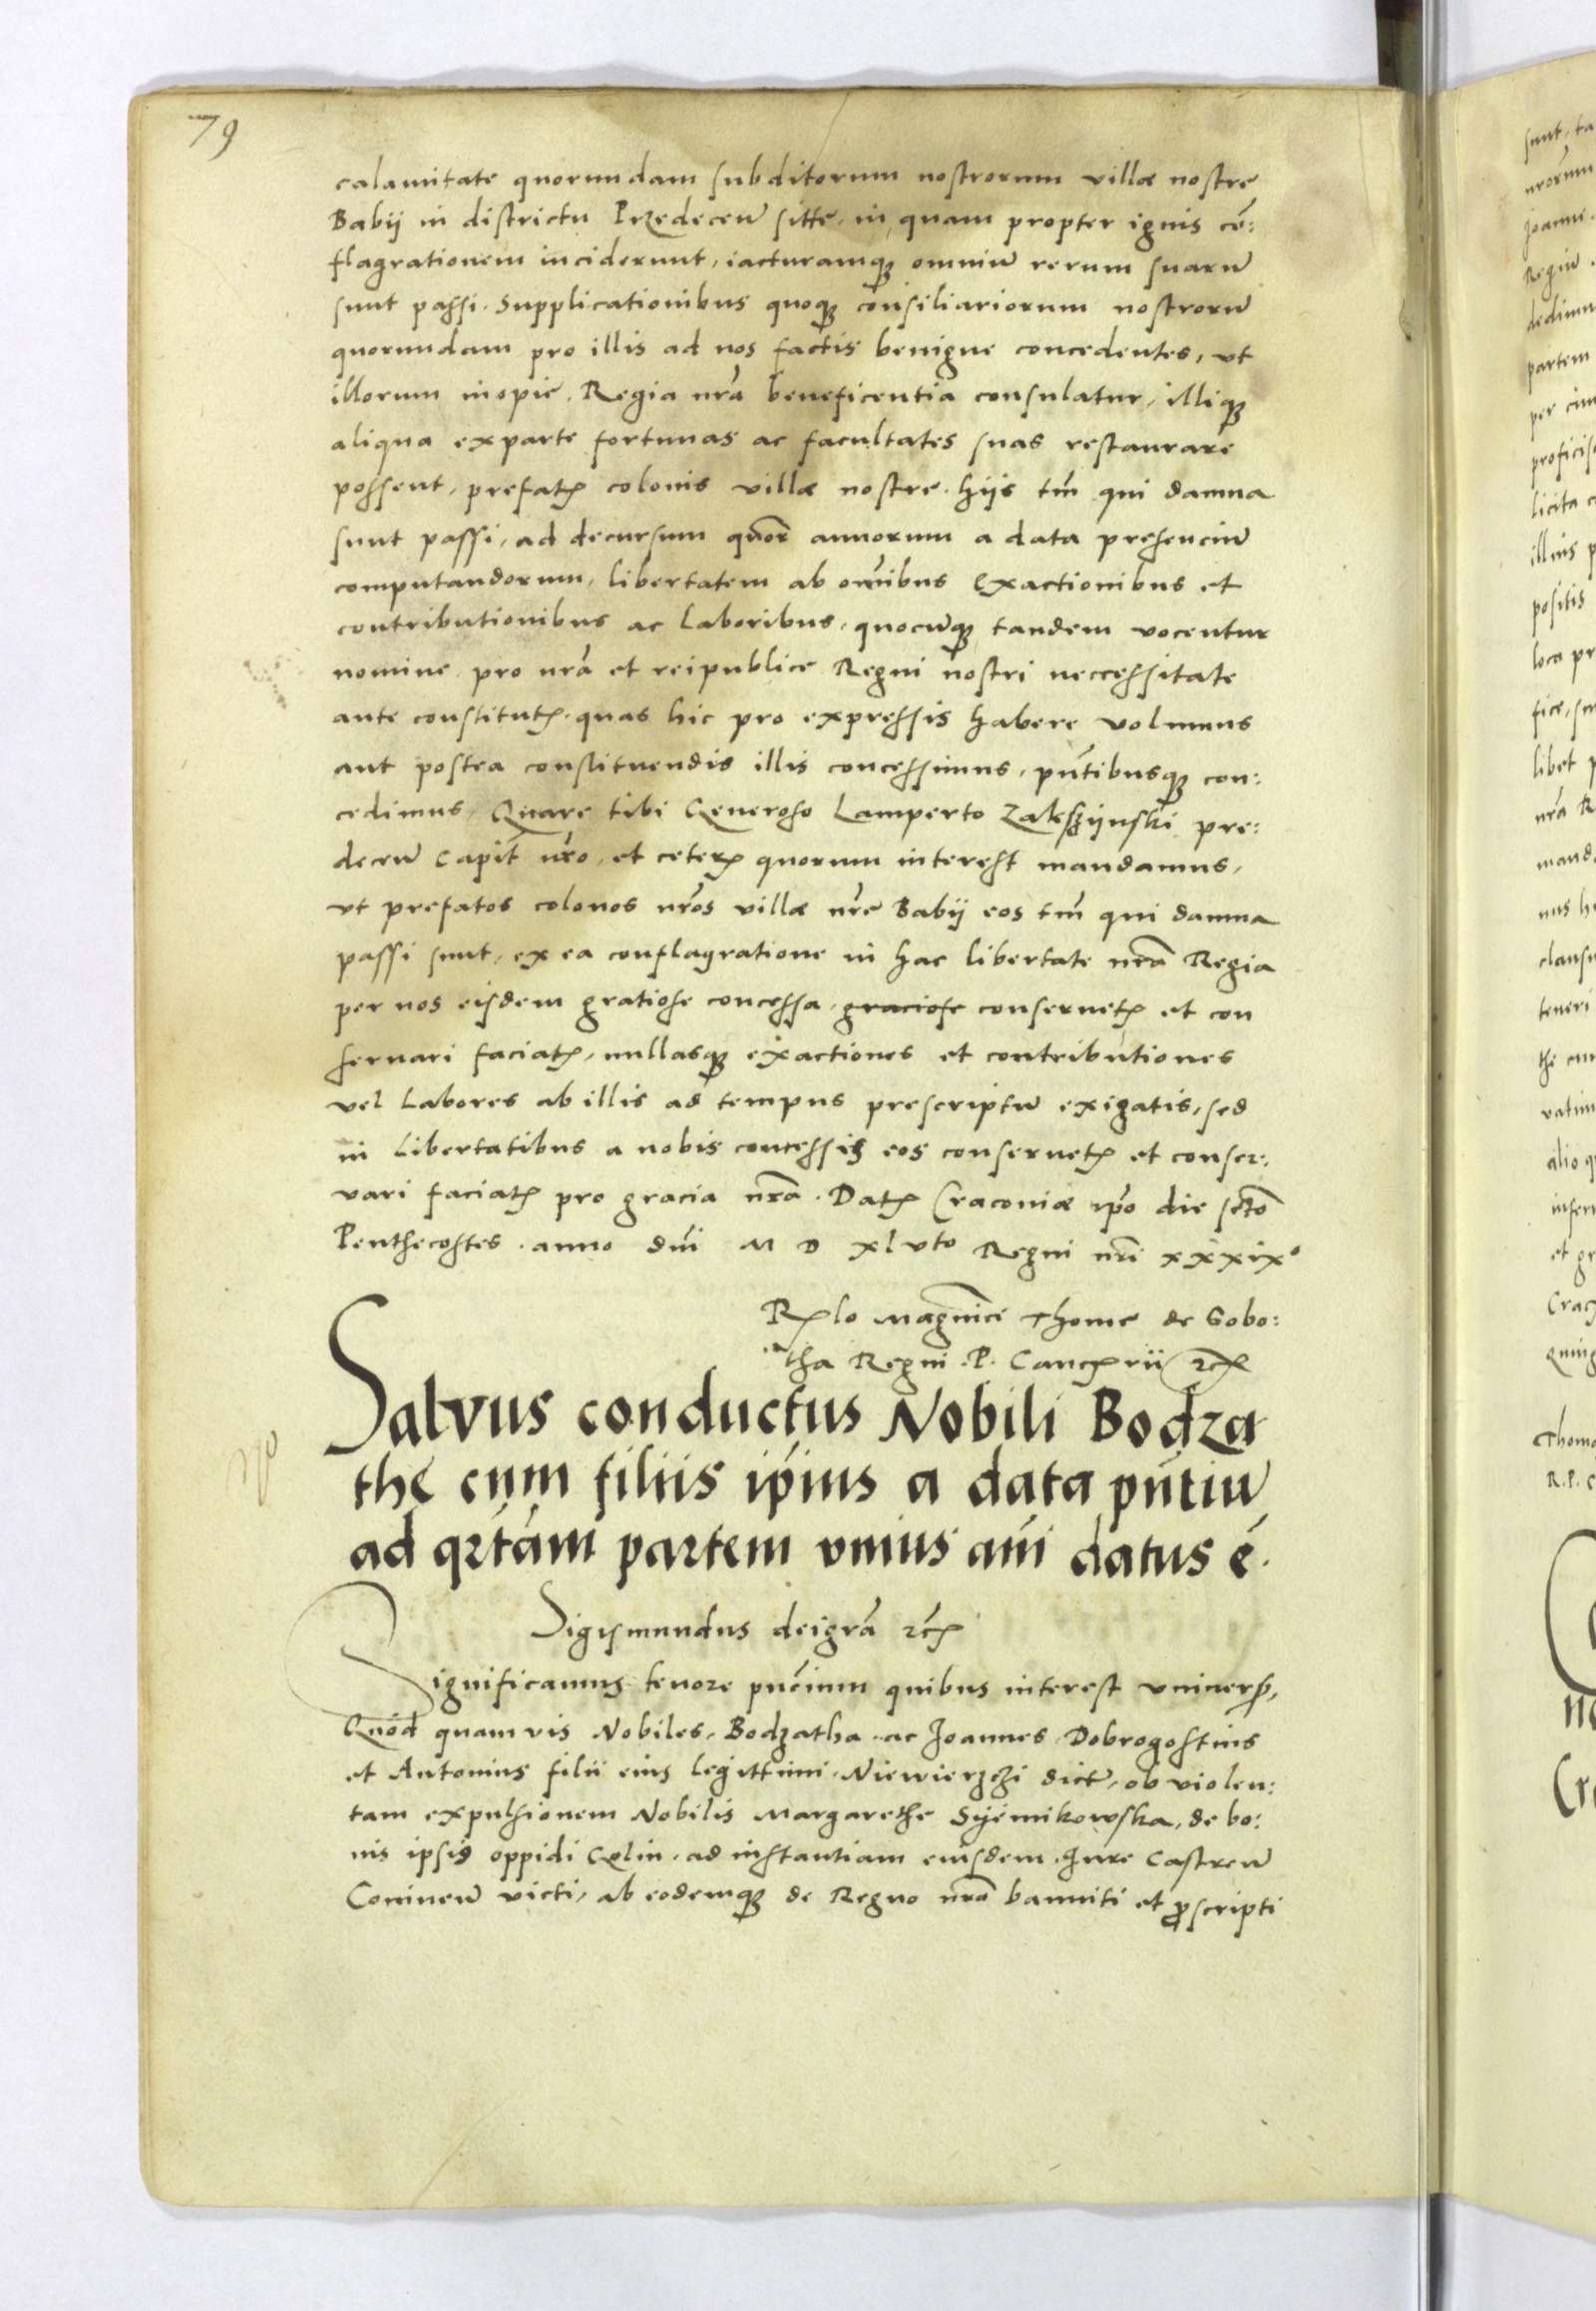 79
calamitate quorundam subditorum nostrorum villæ nostre
Babij in districtu Przedecen̄ sitte, in quam propter ignis cō:
flagrationem inciderunt, iacturamqꝫ omniū rerum suarū
sunt passi. Supplicationibus quoqꝫ consiliariorum nostrorū
quorundam pro illis ad nos factis benigne concedentes, vt
illorum inopie, Regia nr̄a beneficentia consulatur, illiqꝫ
aliqua exparte fortunas ac facultates suas restaurare
possent, prefatꝭ colonis villæ nostre, hijs tm̄ qui damna
sunt passi, ad decursum quor̄ annorum a data presenciū
computandorum, libertatem ab om̄ibus Exactionibus et
contributionibus ac Laboribus, quocūqꝫ tandem vocentur
nomine, pro nr̄a et reipublice Regni nostri neccessitate
ante constitutꝭ, quas hic pro expressis habere volumus
aut postea constituendis illis concessimus, pn̄tibusqꝫ con:
cedimus, Quare tibi Generoso Lamperto Zaleszijnski pre:
decen̄ Capit nr̄o, et ceterꝭ quorum interest mandamus,
vt prefatos colonos nr̄os villæ nr̄e Babij eos tm̄ qui damna
passi sunt, ex ea conflagratione in hac libertate nr̄a Regia
per nos eisdem gratiose concessa, graciose conseruetꝭ et con
seruari faciatꝭ, nullasqꝫ exactiones et contributiones
vel Labores ab illis ad tempus prescriptū exigatis, sed
in Libertatibus a nobis concessis eos conseruetꝭ et conser:
vari faciatꝭ pro gracia nr̄a. Datꝭ Craconiæ ip̄o die sc̄to
Penthecostes. anno dn̄i M D xlvto Regni nr̄i xxxixº
Rꝭlo Magn̄ici Thome de Sobo:
tha Regni .P. Cancꝭrii ⁊cꝭ
Salvus conductus Nobili Bodza
the cum filiis ip̄ius a data pn̄tiū
ad qrtam partem vnius an̄i datus ē.
Sigismundus deigr̄a ⁊cꝭ
Significamus tenore pn̄cium quibus interest vniuersꝭ,
Quod quamvis Nobiles, Bodzatha, ac Joannes Dobrogostius
et Antonius filii eius legittimi, Niewierzchi dictꝭ, ob violen:
tam expulsionem Nobilis Margarethe Syemikowska, de bo:
nis ipsis oppidi Golin, ad instantiam eiusdem, Jure Castren̄
Coninen̄ victi, ab eodemqꝫ de Regno nr̄o banniti et ꝓscripti